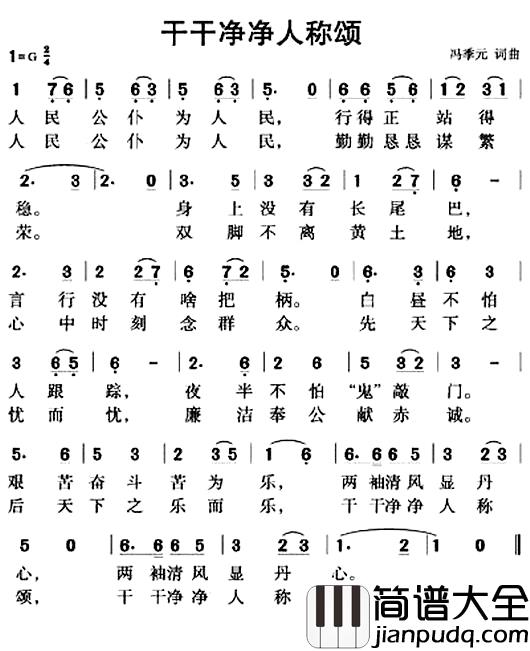 干干净净人称颂
1=G 2/4
冯季元 词曲
1 7 6 | 5 6 3 | 5 6 3 | 5· 0 | 6 6 5 6 | 1 2 3 1 |
人民公仆为人民，行得正站得
人民公仆为人民，勤勤恳恳谋繁
2· 3 | 2· 0 | 3· 5 | 3 3 2 | 1 2 7 | 6 - |
稳。身上没有长尾巴，
荣。双脚不离黄土地，
2· 3 | 2 2 7 | 6 7 2 | 5· 0 | 6· 3 | 6 3 |
言行没有啥把柄。白昼不怕
心中时刻念群众。先天下之
3 6 5 | 6 - | 2· 2 | 2 6 | 5 3 2 | 3 - |
人跟踪，夜半不怕“鬼”敲门。
忧而忧，廉洁奉公献赤诚。
5· 6 | 4 3 | 2 3 5 | 1 6 | 6· 6 6 5 | 3 2 3 |
艰苦奋斗苦为乐，两袖清风显丹
后天下之乐而乐，干干净净人称
5 0 | 6· 6 6 5 | 3 2 3 | 1· 2 | 1 0 ‖
心，两袖清风显丹心。
颂，干干净净人称
简谱大全
jianpudq.com